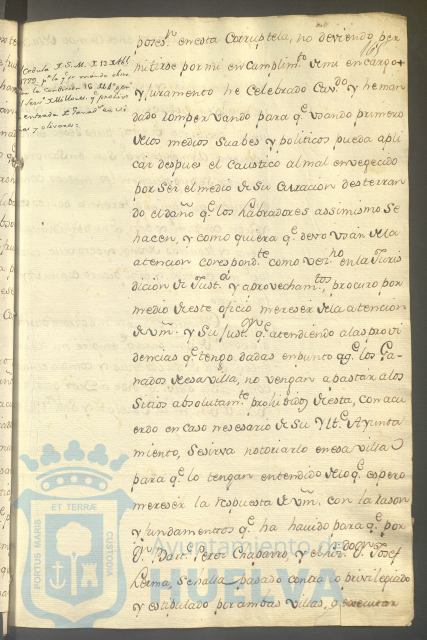 165
Cedula
entrada
as y olivares =
poses.n en esta Corruptela, no deviendo per
mitirse por mi en cumplim.to de mi encargo
y juramento he Celebrado Cav.do y he man
dado Romper vando para q.e usando primero
de los medios Suabes y politicos pueda apli
car despues el Caustico al mal envegecido
por ser el medio de Su Curacion desterran
do el daño q.e los Labradores assimismo Se
hacen, y como quiera q.e devo usar de la
atencion correspond.te como vez.no en la Juris
dicion de Just.a y aprovecham.tos, procuro por
medio de este oficio mereser de la atencion
de Vm. y Su q.e atendiendo a las provi
dencias q.e tengo dadas en punto a q.e los Ga-
nados de esa villa, no vengan a pastar a los
Sitios absolutam.te prohibidos de esta, con acu
erdo en caso nesesario de Su Yl.te Ayunta
miento, Se sirva notoriarlo en esa villa
para q.e lo tengan entendido de lo q.e espero
mereser la respuesta de Vm. con la rason
y fundamentos q.e ha havido para q.e por
D.n Bart. Perez Chaparro, y el Josef
Lerma, Se halla pasado contra lo privilegiado
y estipulado por ambas villas, a executar
PORTUS MARIS ET TERRÆ CUSTODIA
Ayuntamiento de
HUELVA